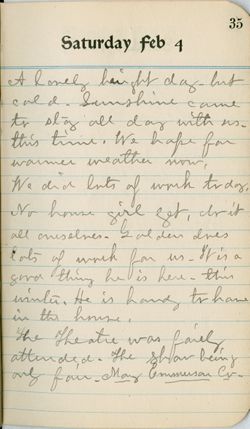 35
Saturday Feb 4
A lovely bright day - but
cold. Sunshine came
to stay all day with us
this time. We hope for
warmer weather now.
We did lots of work today.
No house girl yet, do it
all ourselves. does
lots of work for us - It is a
good thing he is here - this
winter. He is handy to have
in the house.
The Theatre was fairly
attended. The Show being
only fair - May